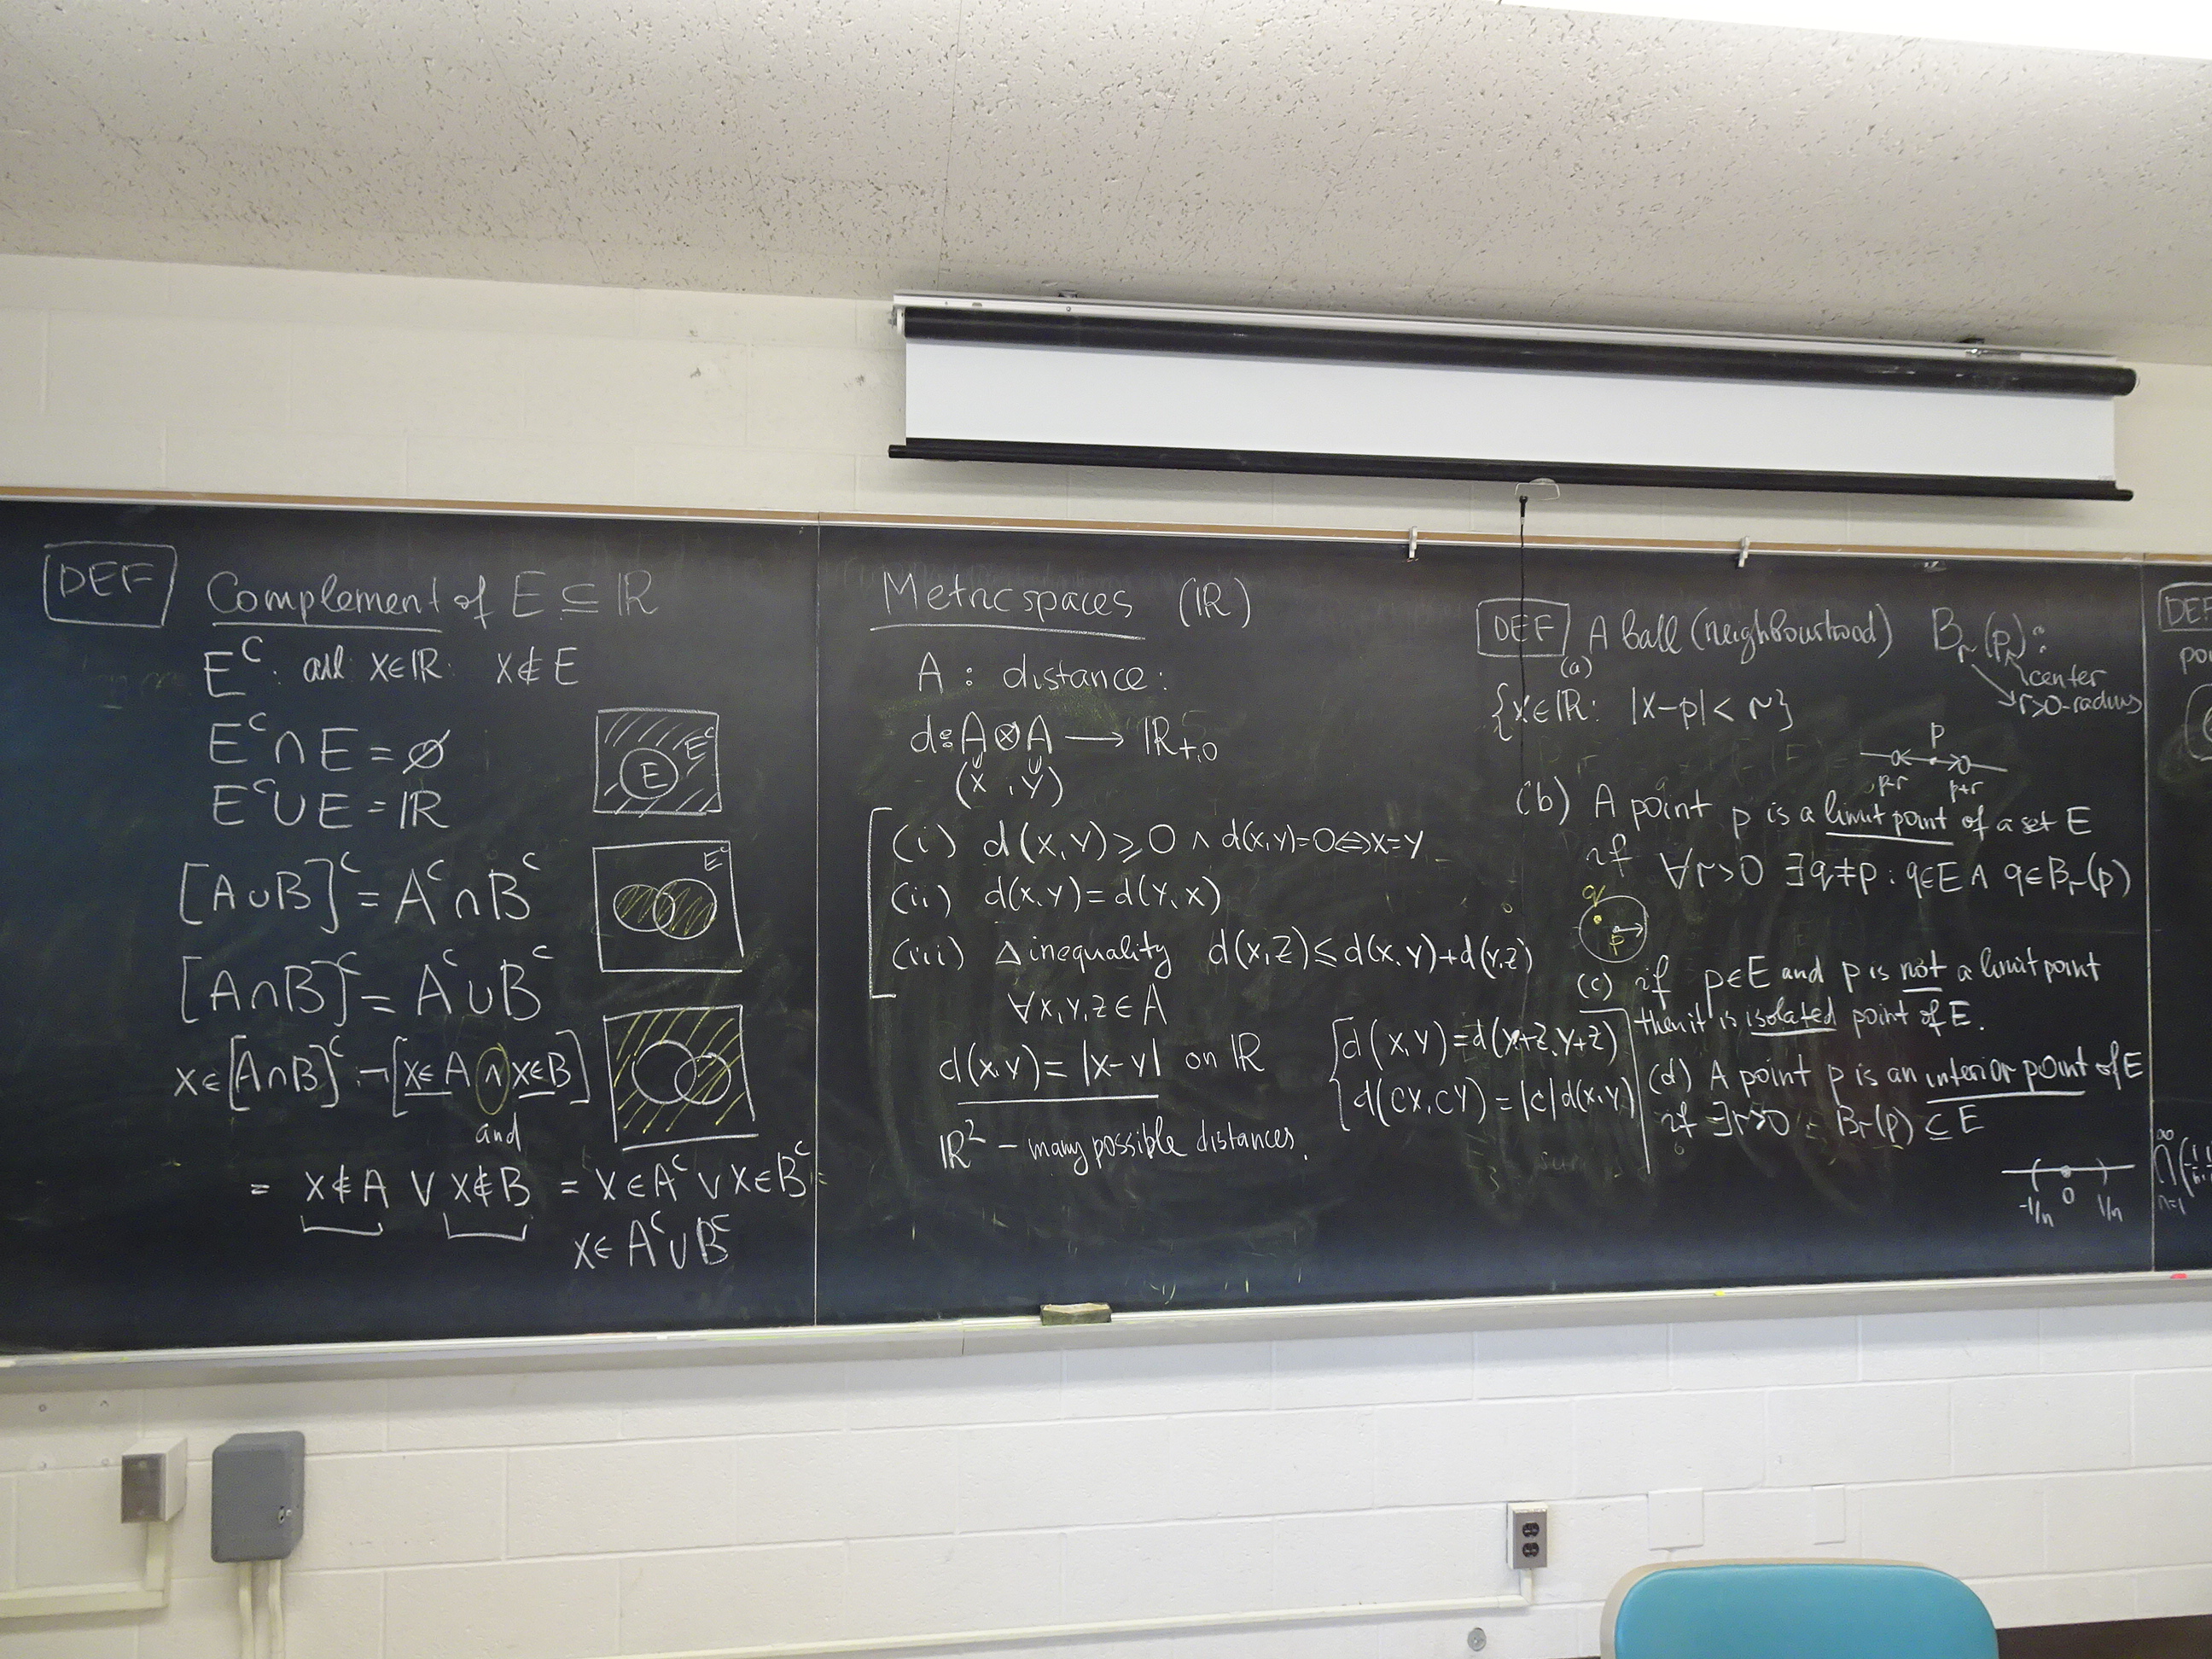 DEF Complement of E ⊆ ℝ
E^c : all x∈ℝ: x∉E
E^c ∩ E = ∅
E^c ∪ E = ℝ
E E^c
[A∪B]^c = A^c ∩ B^c
E^c
[A∩B]^c = A^c ∪ B^c
x∈[A∩B]^c ¬[x∈A ∧ x∈B]
and
= x∉A ∨ x∉B = x∈A^c ∨ x∈B^c =
x∈ A^c ∪ B^c
Metric spaces (ℝ)
A : distance:
d: A⊗A → ℝ+,0
(x , y)
(i) d(x,y) ⩾ 0 ∧ d(x,y)=0 ⇔ x=y
(ii) d(x,y) = d(y,x)
(iii) Δ inequality d(x,z) ≤ d(x,y)+d(y,z)
∀x,y,z ∈ A
d(x,y) = |x-y| on ℝ
ℝ² – many possible distances.
d(x,y)=d(x+z,y+z)
d(cx,cy) = |c| d(x,y)
DEF A ball (neighbourhood) B_r(p):
(a)
center
r>0-radius
{x∈ℝ: |x-p| < r}
p
p-r p+r
(b) A point p is a limit point of a set E
if ∀r>0 ∃q≠p : q∈E ∧ q∈B_r(p)
q
p
(c) if p∈E and p is not a limit point
then it is isolated point of E.
(d) A point p is an interior point of E
if ∃r>0 : B_r(p) ⊆ E
-1/n 0 1/n
DEF